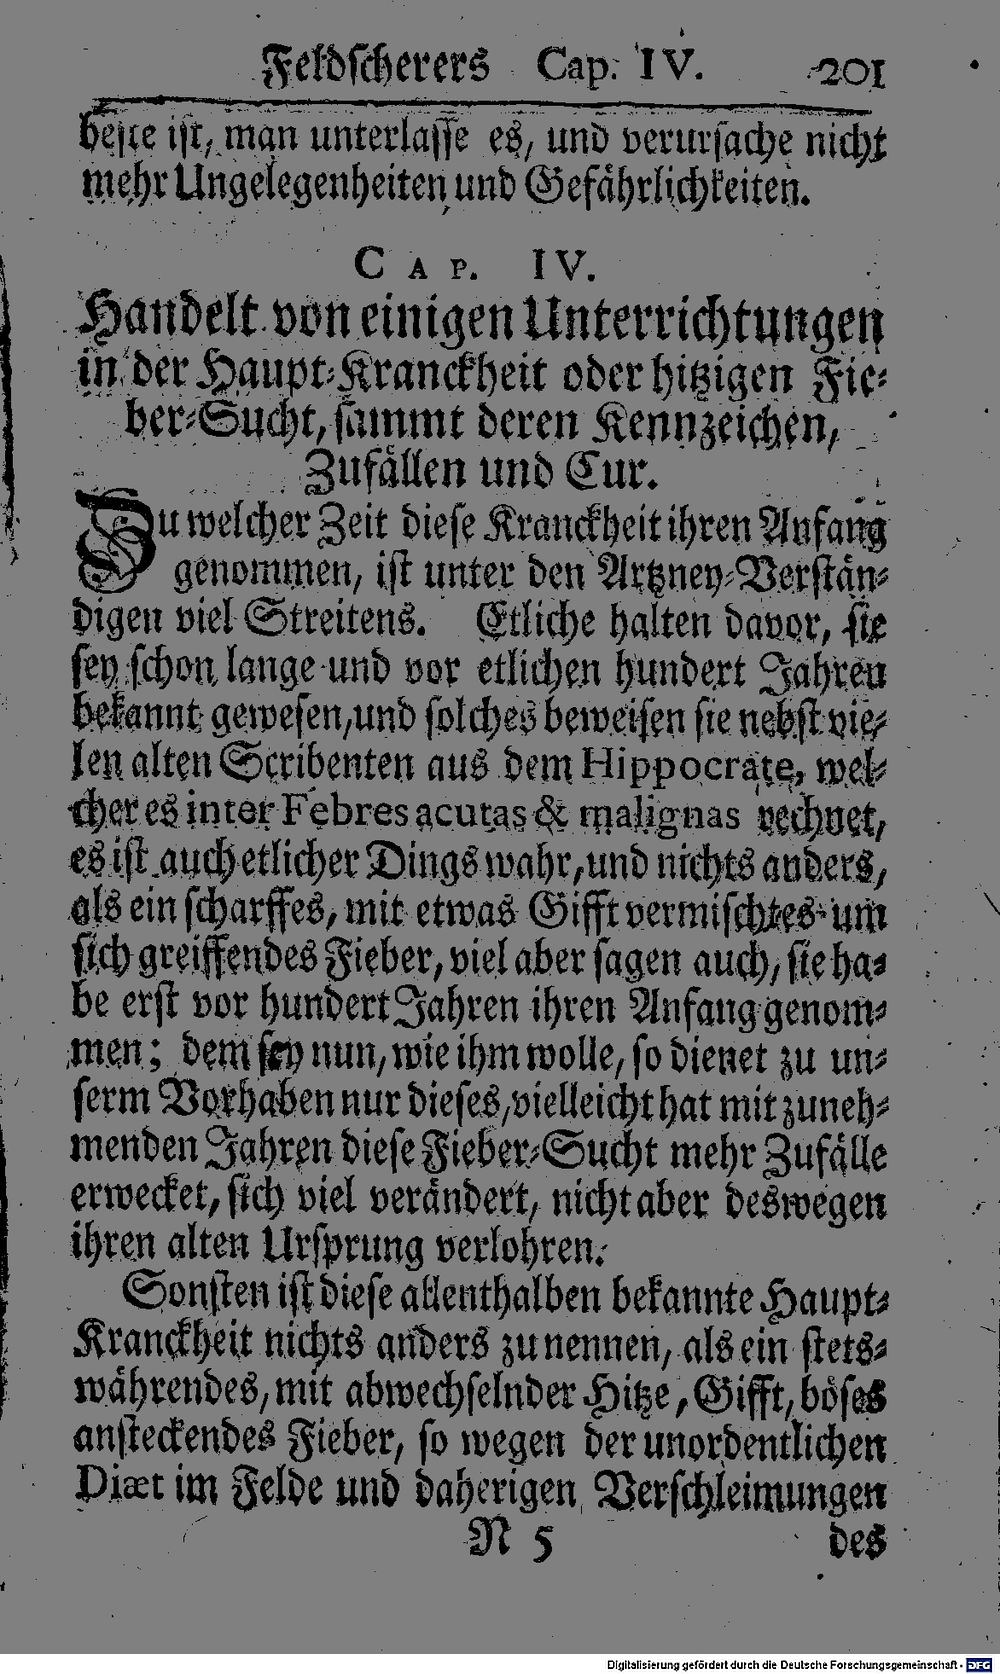 Feldscherers Cap. IV. 201
beste ist, man unterlasse es, und verursache nicht
mehr Ungelegenheiten und Gefährlichkeiten.
CAP. IV.
Handelt von einigen Unterrichtungen
in der Haupt-Kranckheit oder hitzigen Fie-
ber-Sucht, sammt deren Kennzeichen,
Zufällen und Cur.
Zu welcher Zeit diese Kranckheit ihren Anfang
genommen, ist unter den Artzney-Verstän-
digen viel Streitens. Etliche halten davor, sie
sey schon lange und vor etlichen hundert Jahren
bekannt gewesen, und solches beweisen sie nebst vie-
len alten Scribenten aus dem Hippocrate, wel-
cher es inter Febres acutas & malignas rechnet,
es ist auch etlicher Dings wahr, und nichts anders,
als ein scharffes, mit etwas Gifft vermischtes um
sich greiffendes Fieber, viel aber sagen auch, sie ha-
be erst vor hundert Jahren ihren Anfang genom-
men; dem sey nun, wie ihm wolle, so dienet zu un-
serm Vorhaben nur dieses, vielleicht hat mit zuneh-
menden Jahren diese Fieber-Sucht mehr Zufälle
erwecket, sich viel verändert, nicht aber deswegen
ihren alten Ursprung verlohren.
Sonsten ist diese allenthalben bekannte Haupt-
Kranckheit nichts anders zu nennen, als ein stets-
währendes, mit abwechselnder Hitze, Gifft, böses
ansteckendes Fieber, so wegen der unordentlichen
Diæt im Felde und daherigen Verschleimungen
N 5 des
Digitalisierung gefördert durch die Deutsche Forschungsgemeinschaft - DFG